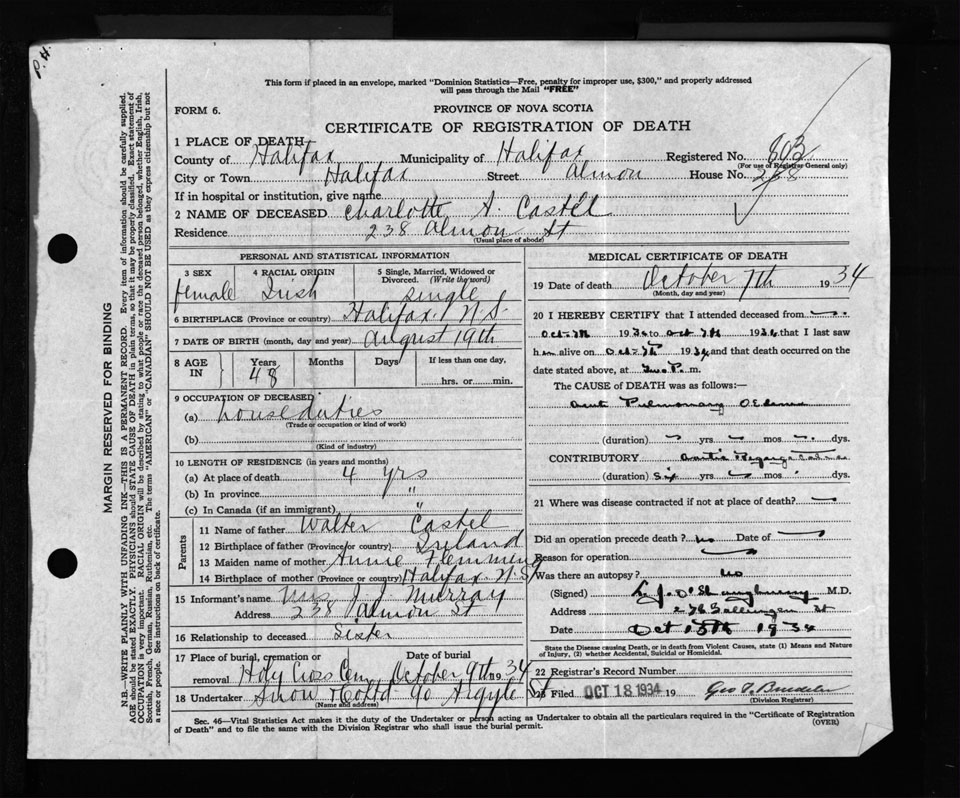 P. H.
This form if placed in an envelope, marked "Dominion Statistics—Free, penalty for improper use, $300," and properly addressed
will pass through the Mail "FREE"
FORM 6.
PROVINCE OF NOVA SCOTIA
CERTIFICATE OF REGISTRATION OF DEATH
1 PLACE OF DEATH
County of Halifax Municipality of Halifax Registered No. 803
(For use of Registrar General only)
City or Town Halifax Street Almon House No. 238
If in hospital or institution, give name
2 NAME OF DECEASED Charlotte A. Castel
Residence 238 Almon St
(Usual place of abode)
PERSONAL AND STATISTICAL INFORMATION
3 SEX female
4 RACIAL ORIGIN Irish
5 Single, Married, Widowed or
Divorced. (Write the word)
Single
6 BIRTHPLACE (Province or country) Halifax N.S.
7 DATE OF BIRTH (month, day and year) August 19th
8 AGE IN Years 48 Months Days If less than one day,
hrs. or min.
9 OCCUPATION OF DECEASED
(a) house duties
(Trade or occupation or kind of work)
(b)
(Kind of industry)
10 LENGTH OF RESIDENCE (in years and months)
(a) At place of death 4 yrs
(b) In province "
(c) In Canada (if an immigrant) "
Parents
11 Name of father Walter Castel
12 Birthplace of father (Province or country) Ireland
13 Maiden name of mother Annie Flemming
14 Birthplace of mother (Province or country) Halifax N.S
15 Informant's name Mrs J. J. Murray
Address 238 Almon St
16 Relationship to deceased Sister
17 Place of burial, cremation or removal Holy Cross Cem Date of burial October 9th 1934
18 Undertaker Snow & Co Ltd 90 Argyle St
(Name and address)
MEDICAL CERTIFICATE OF DEATH
19 Date of death October 7th 1934
(Month, day and year)
20 I HEREBY CERTIFY that I attended deceased from
Oct 7th 1934 to Oct 7th 1934 that I last saw
him alive on Oct 7th 1934 and that death occurred on the
date stated above, at P. m.
The CAUSE of DEATH was as follows:—
Acute Pulmonary Oedema
(duration) yrs mos dys.
CONTRIBUTORY Aortic
(duration) Six yrs mos dys.
21 Where was disease contracted if not at place of death?
Did an operation precede death? no Date of
Reason for operation
Was there an autopsy? no
(Signed) O'Shaughnessy M.D.
Address St
Date Oct 1934
State the Disease causing Death, or in death from Violent Causes, state (1) Means and Nature
of Injury, (2) whether Accidental, Suicidal or Homicidal.
22 Registrar's Record Number
23 Filed OCT 18 1934 19
(Division Registrar)
Sec. 46—Vital Statistics Act makes it the duty of the Undertaker or person acting as Undertaker to obtain all the particulars required in the "Certificate of Registration
of Death" and to file the same with the Division Registrar who shall issue the burial permit.
(OVER)
MARGIN RESERVED FOR BINDING
N.B.—WRITE PLAINLY WITH UNFADING INK—THIS IS A PERMANENT RECORD. Every item of information should be carefully supplied.
AGE should be stated EXACTLY. PHYSICIANS should STATE CAUSE OF DEATH in plain terms, so that it may be properly classified. Exact statement of
OCCUPATION is very important. RACIAL ORIGIN will be described by stating to what people or race the deceased person belonged, whether English, Irish,
Scottish, French, German, Russian, Ruthenian, etc. The terms "AMERICAN" or "CANADIAN" SHOULD NOT BE USED as they express citizenship but not
a race or people. See instructions on back of certificate.